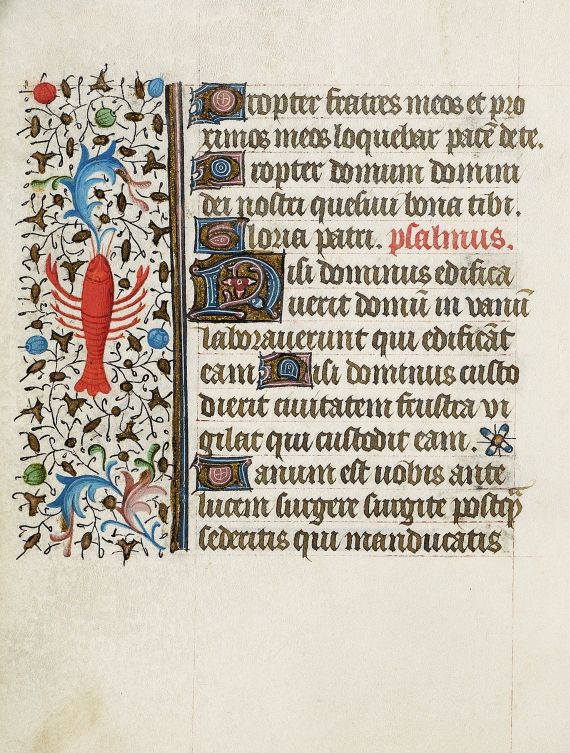 Propter fratres meos et pro
ximos meos loquebar pacē de te.
Propter domum domini
dei nostri quesiui bona tibi.
Gloria patri. psalmus.
Nisi dominus edifica
uerit domū in vanū
laborauerunt qui edificāt
eam Nisi dominus custo
dierit ciuitatem frustra vi
gilat qui custodit eam.
Uanum est uobis ante
lucem surgere surgite postq̄
sederitis qui manducatis